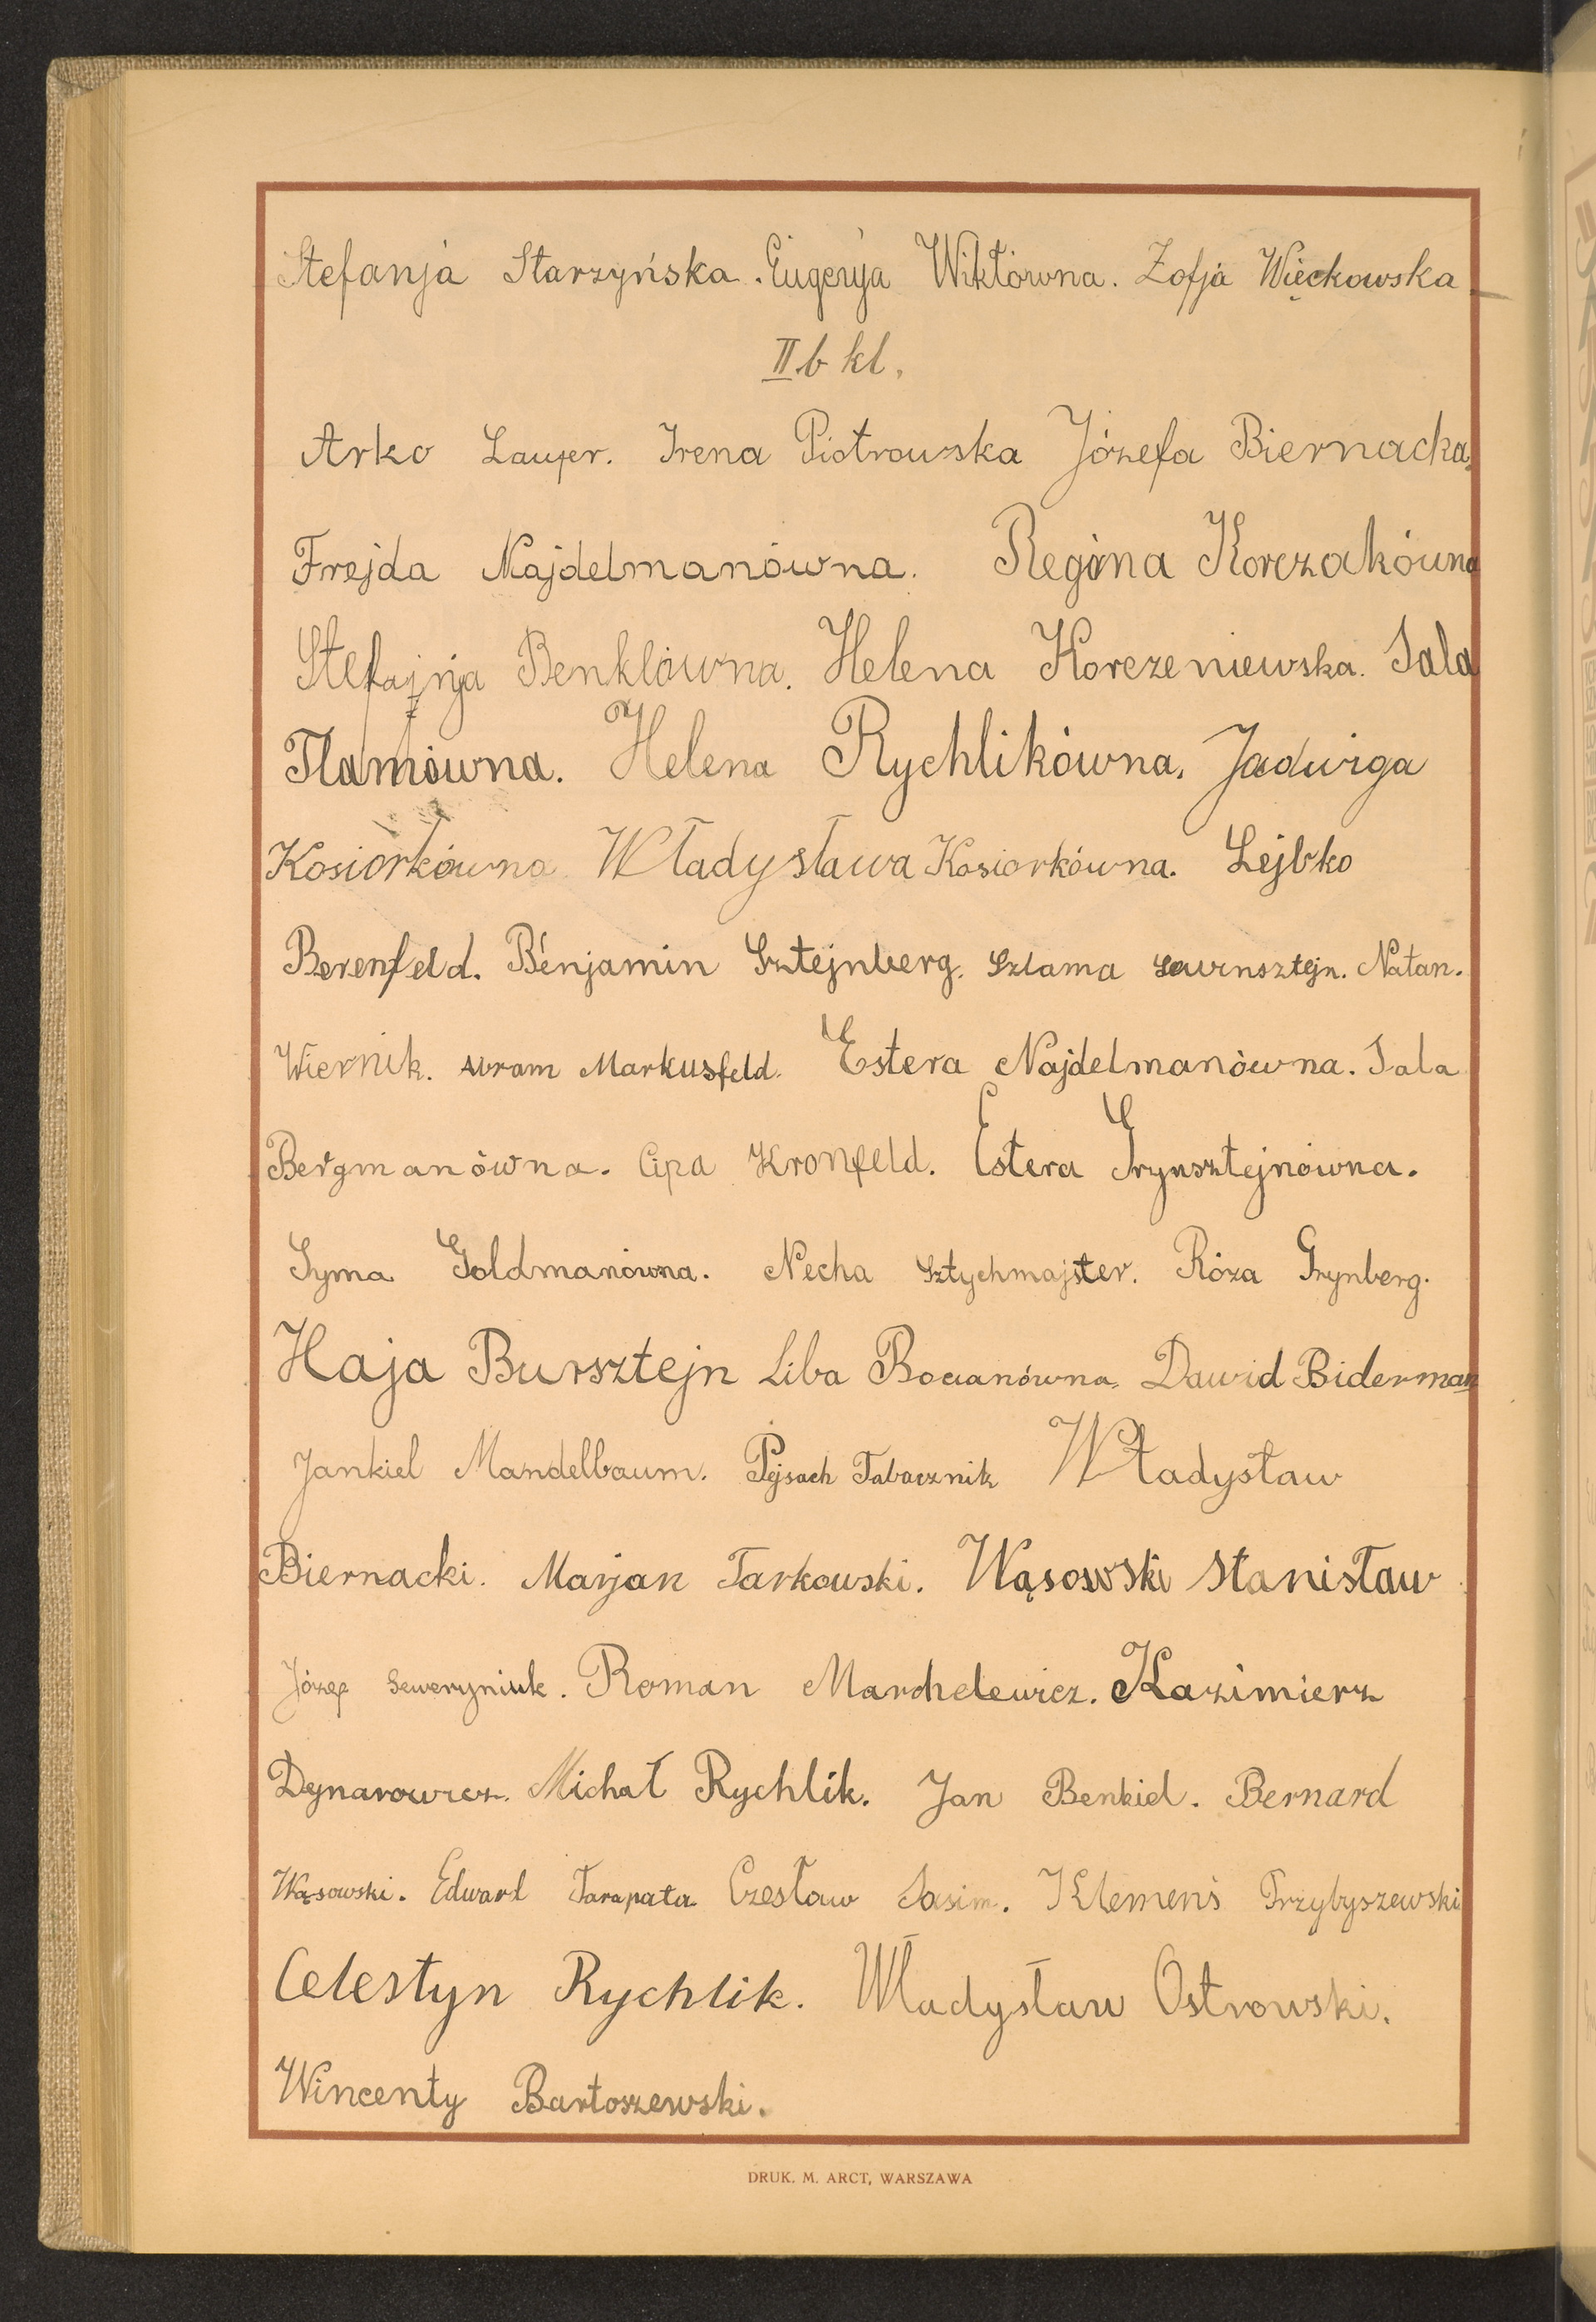 Stefanja Starzyńska. Eugenja Wiktówna. Zofja Więckowska
II b kl.
Arko Laufer. Irena Piotrowska Józefa Biernacka,
Frejda Najdelmanówna. Regina Korczakówna
Stefanja Benklówna. Helena Korczeniewska. Sala
Tlamówna. Helena Rychlikówna. Jadwiga
Kosiorkówna Władysława Kosiorkówna. Lejbko
Berenfeld. Benjamin Sztejnberg. Szlama Lewinsztejn. Natan.
Wiernik. Abram Markusfeld. Estera Najdelmanówna. Sala
Bergmanówna. Cipa Kronfeld. Estera Grynsztejnówna.
Syma Goldmanówna. Necha Sztychmajster. Róza Grynberg.
Haja Bursztejn Liba Bocianówna. Dawid Biderman
Jankiel Mandelbaum. Pejsach Tabacznik Władysław
Biernacki. Marjan Tarkowski. Wąsowski Stanisław
Józef Seweryniuk. Roman Marchelewicz. Kazimierz
Dynarowicz. Michał Rychlik. Jan Benkiel. Bernard
Wąsowski. Edward Tarapata Czesław Sasim. Klemens Przybyszewski
Celestyn Rychlik. Władysław Ostrowski.
Wincenty Bartoszewski.
DRUK. M. ARCT, WARSZAWA